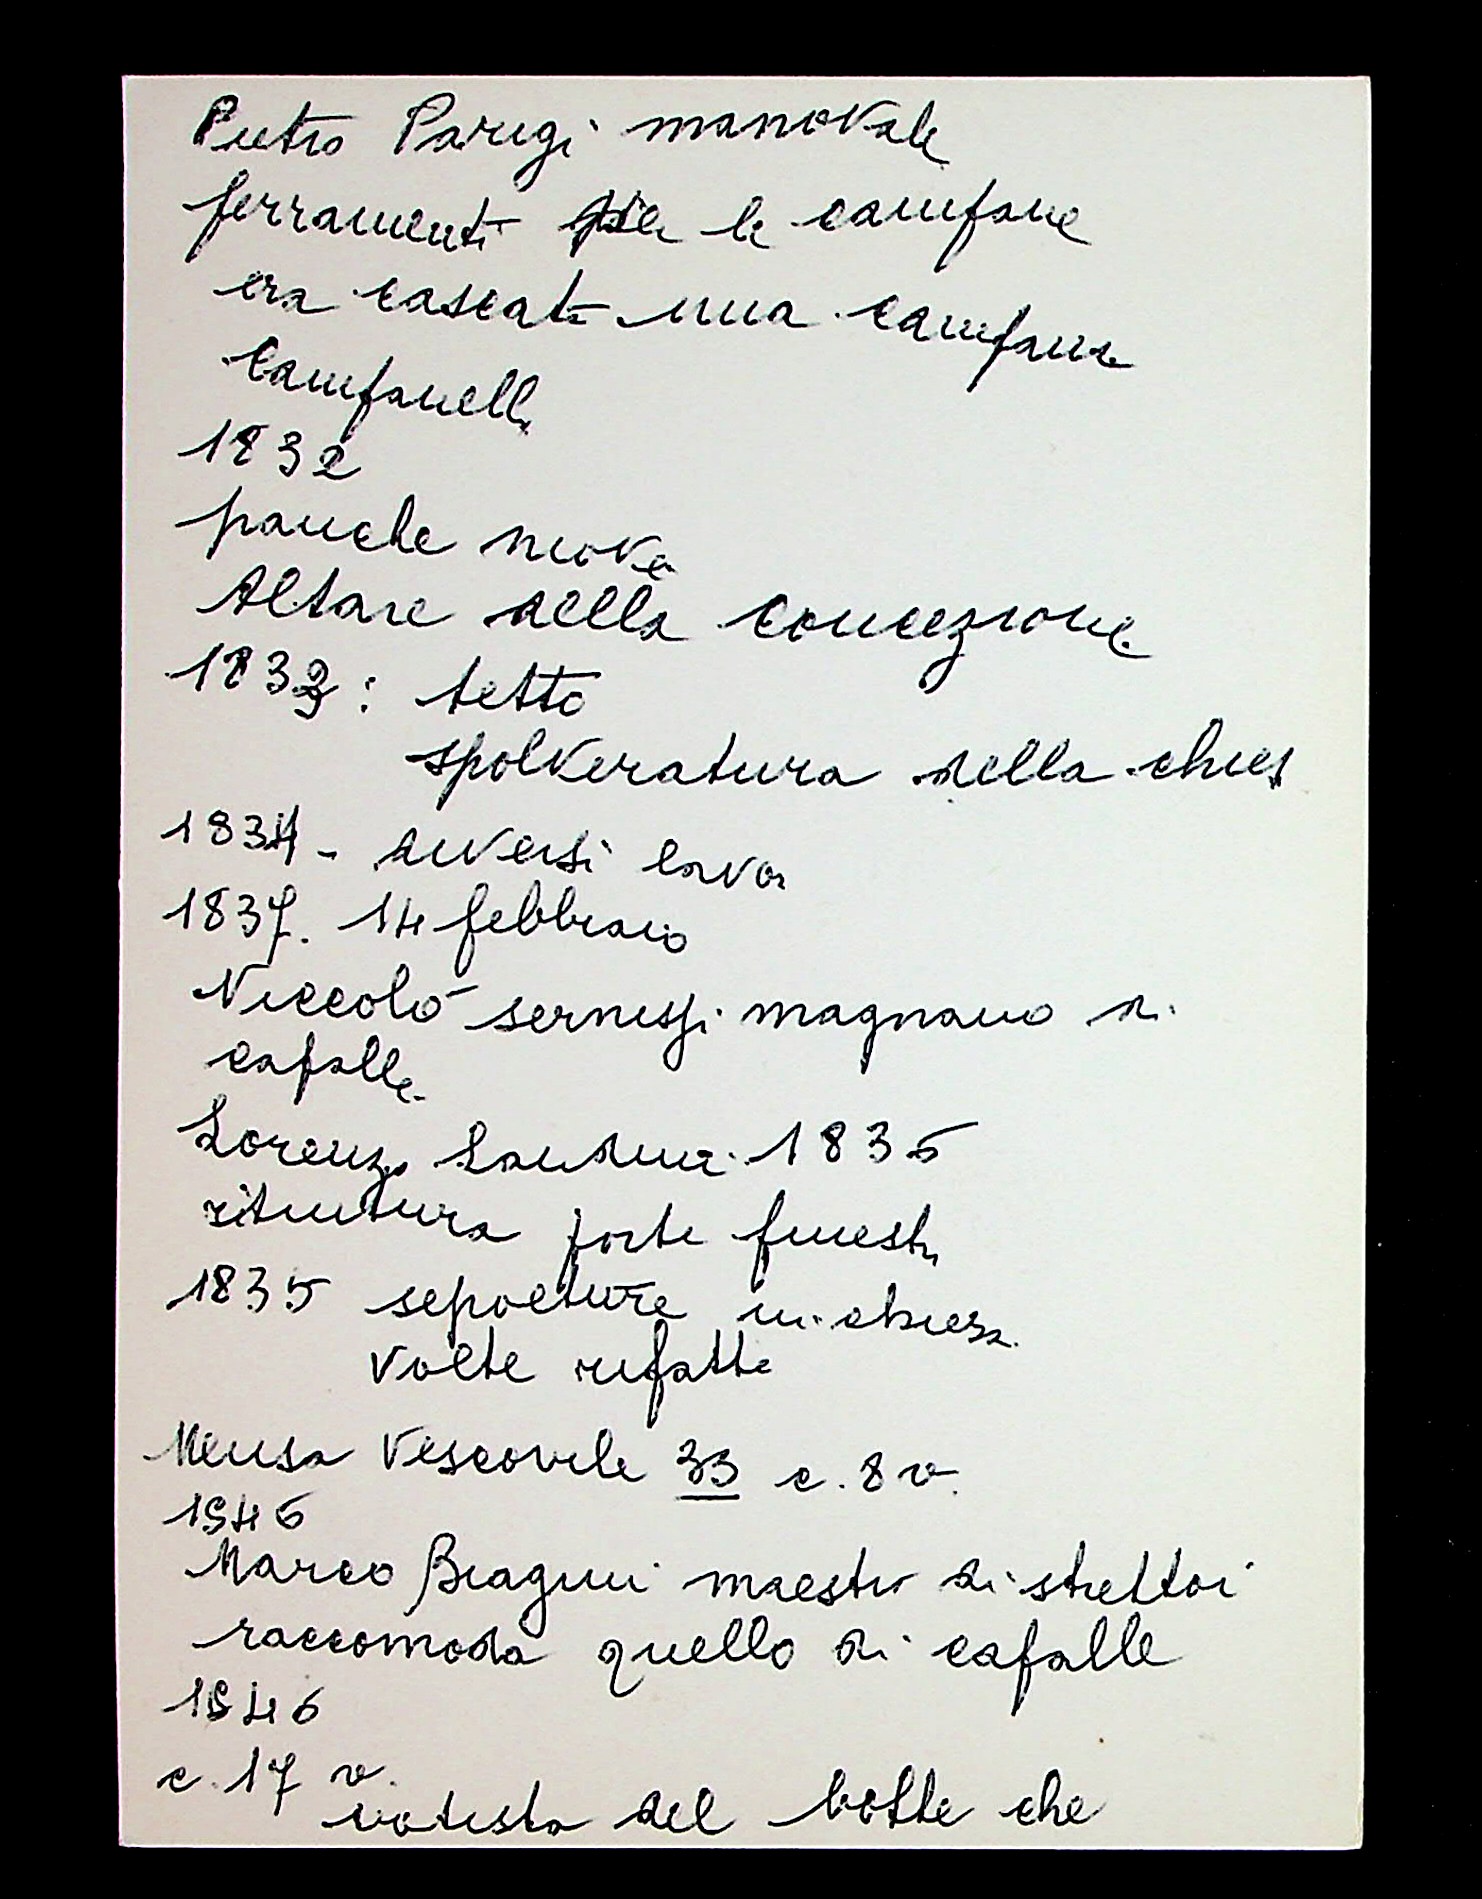 Pietro Parigi manovale
ferramenti per le campane
era cascata una campana
campanelli
1832
panche nuove
Altare della concezione
1833: tetto
spolveratura della chiesa
1834 - diversi lavori
1837. 14 febbraio
Niccolò Sernissi magnano di
Capalle
Lorenzo Landini 1836
ritintura porte finestre
1835 sepolture in chiesa
volte rifatte
Mensa Vescovile 33 c. 8 v.
1546
Marco Biagini maestro di strettoi
raccomoda quello di Capalle
1546
c. 17 v.
del botte che